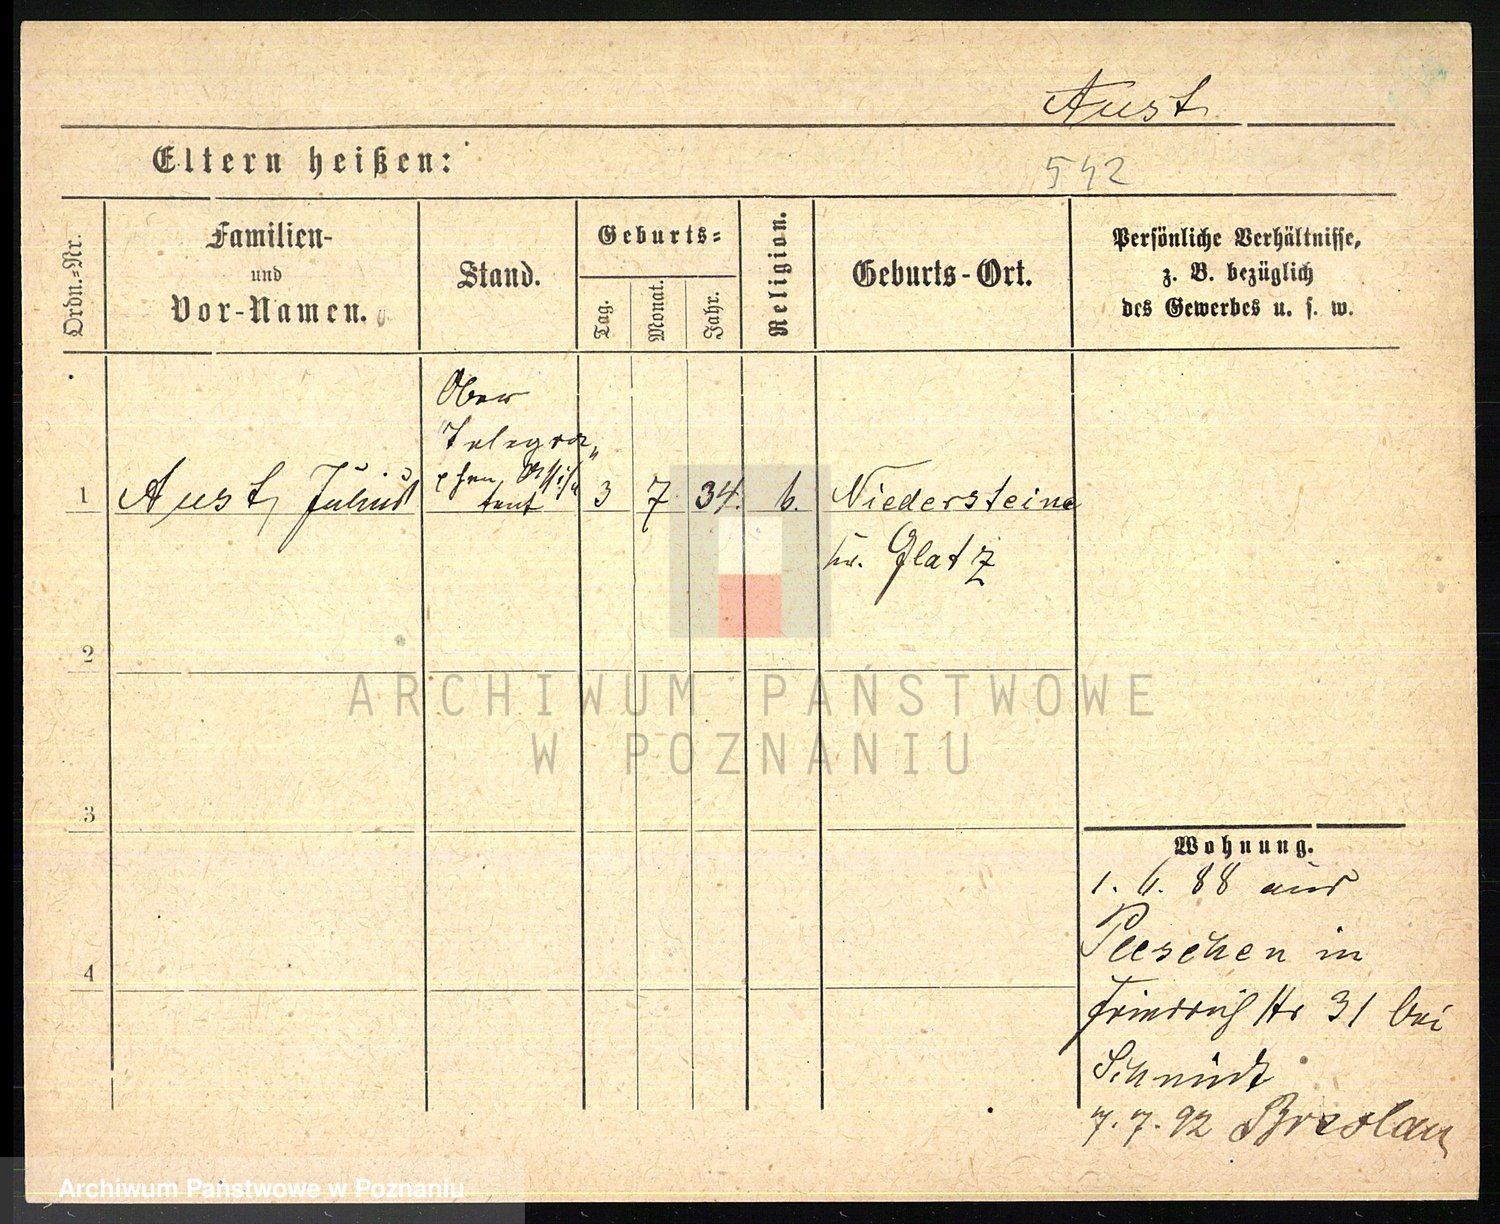 Aust
Eltern heißen:
542
Ordn.=Nr.
Familien-
und
Vor-Namen.
Stand.
Geburts=
Tag.
Monat.
Jahr.
Religion.
Geburts-Ort.
Persönliche Verhältnisse,
z. B. bezüglich
des Gewerbes u. s. w.
Ober
Telegra„
phen Assis
tent
1 Aust, Julius 3 7. 34. Niedersteine
Kr. Glatz
2
3
4
ARCHIWUM PAŃSTWOWE
W POZNANIU
Wohnung.
1. 6. 88 aus
Pleschen in
Friedrich Str 31 bei
Schmidt
7. 7. 92 Breslau
Archiwum Państwowe w Poznaniu